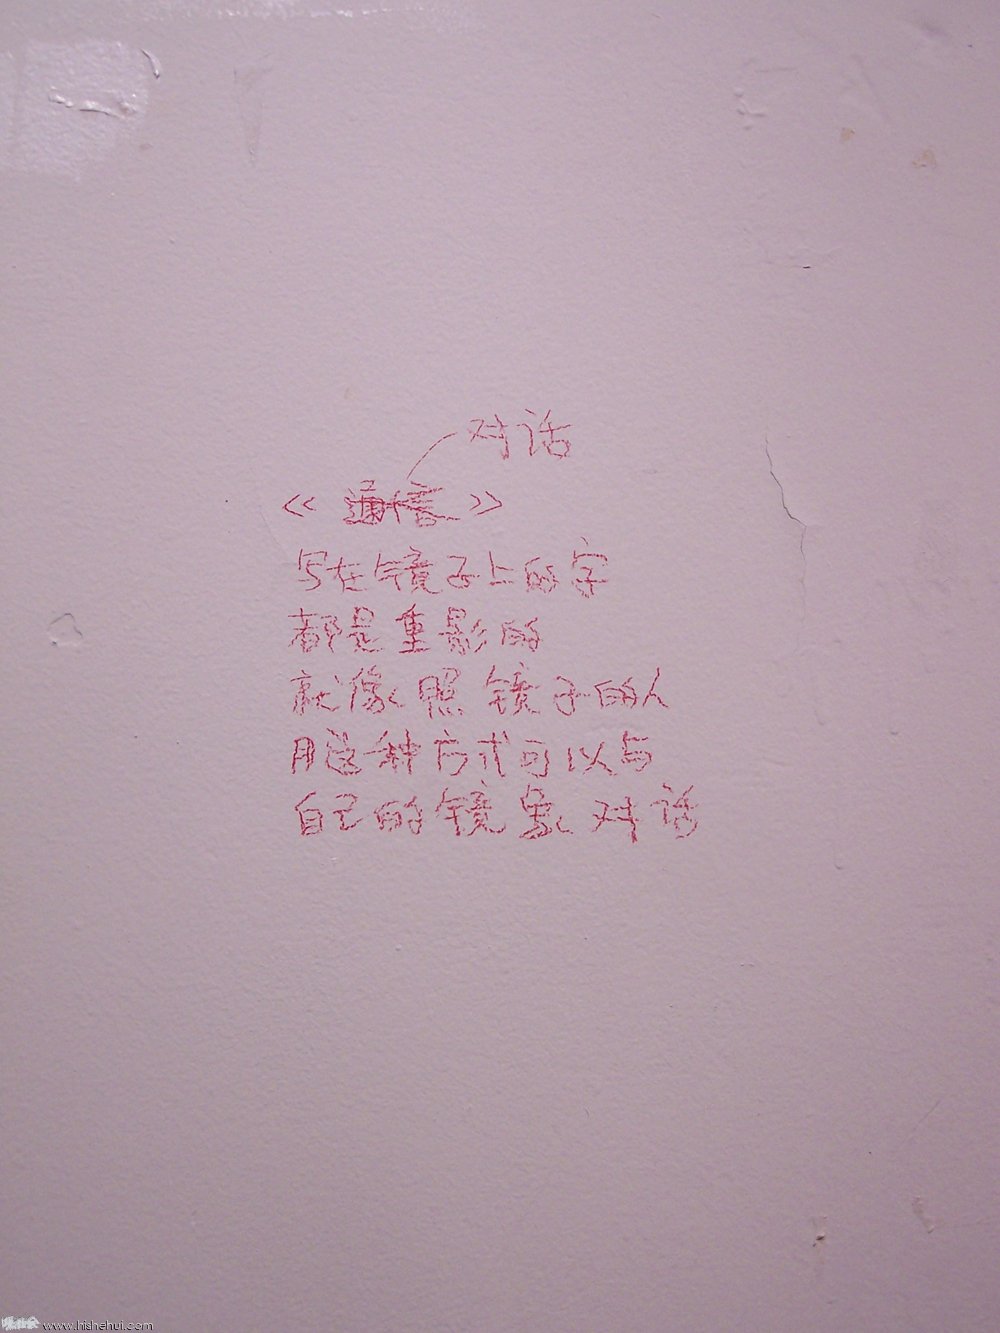 对话
《通信》
写在镜子上的字
都是重影的
就像照镜子的人
用这种方式可以与
自己的镜象对话
www.hishehui.com